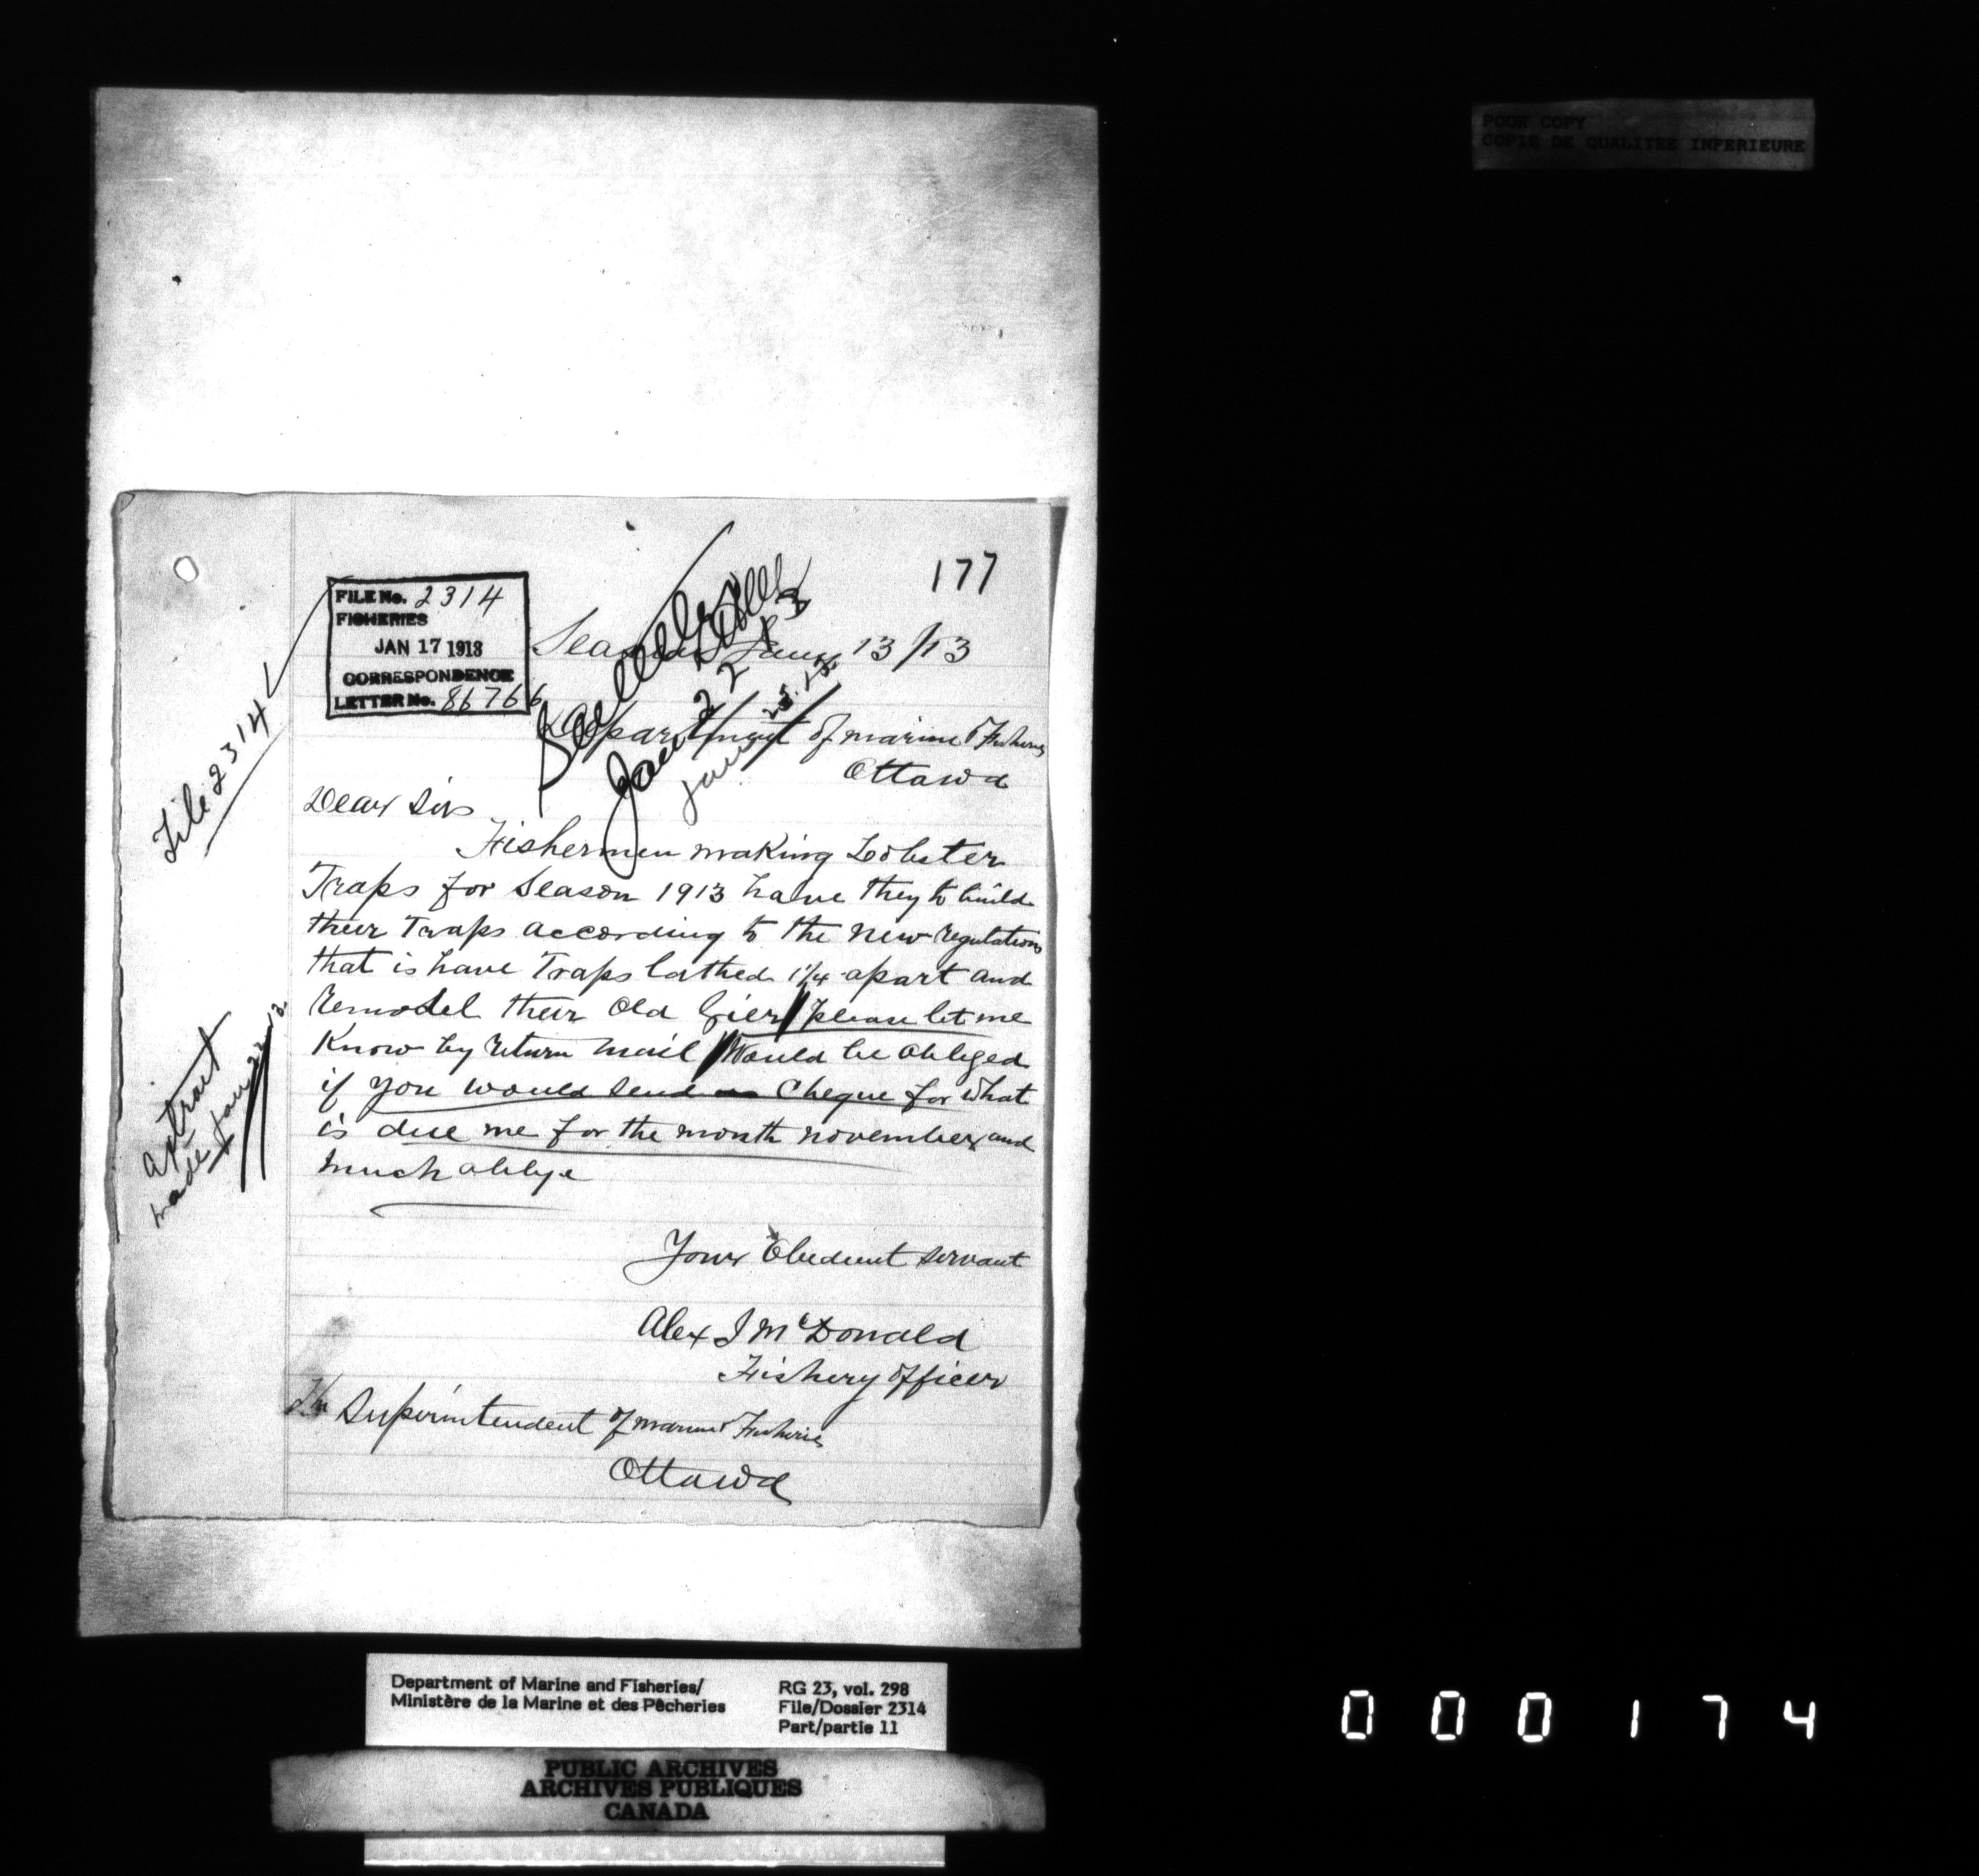 POOR COPY
COPIE DE QUALITEE INFERIEURE
177
FILE No. 2314
FISHERIES
JAN 17 1913
CORRESPONDENCE
LETTER No. 86766
13/13
Jan 22
Department of marine & Fisheries
Ottawa
File 2314
Dear Sir
Fishermen making Lobster
Traps for Season 1913 have they to build
their Traps according to the new regulations
that is have Traps lathed 1 1/4 apart and
remodel their Old Gier please let me
Know by return mail Would be obliged
if you would send Cheque for what
is due me for the month november and
much oblige
Extract
made Jan 22
Your Obedient servant
Alex J McDonald
Fishery Officer
The Superintendent of marine & Fisheries
Ottawa
Department of Marine and Fisheries/
Ministère de la Marine et des Pêcheries
RG 23, vol. 298
File/Dossier 2314
Part/partie 11
PUBLIC ARCHIVES
ARCHIVES PUBLIQUES
CANADA
000174